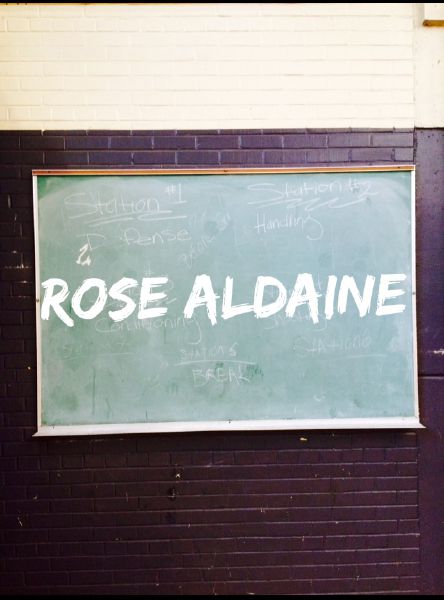 Station #1
Station #2
Defense
Handling
ROSE ALDAINE
Conditioning
STATION 5
STATION 6
BREAK